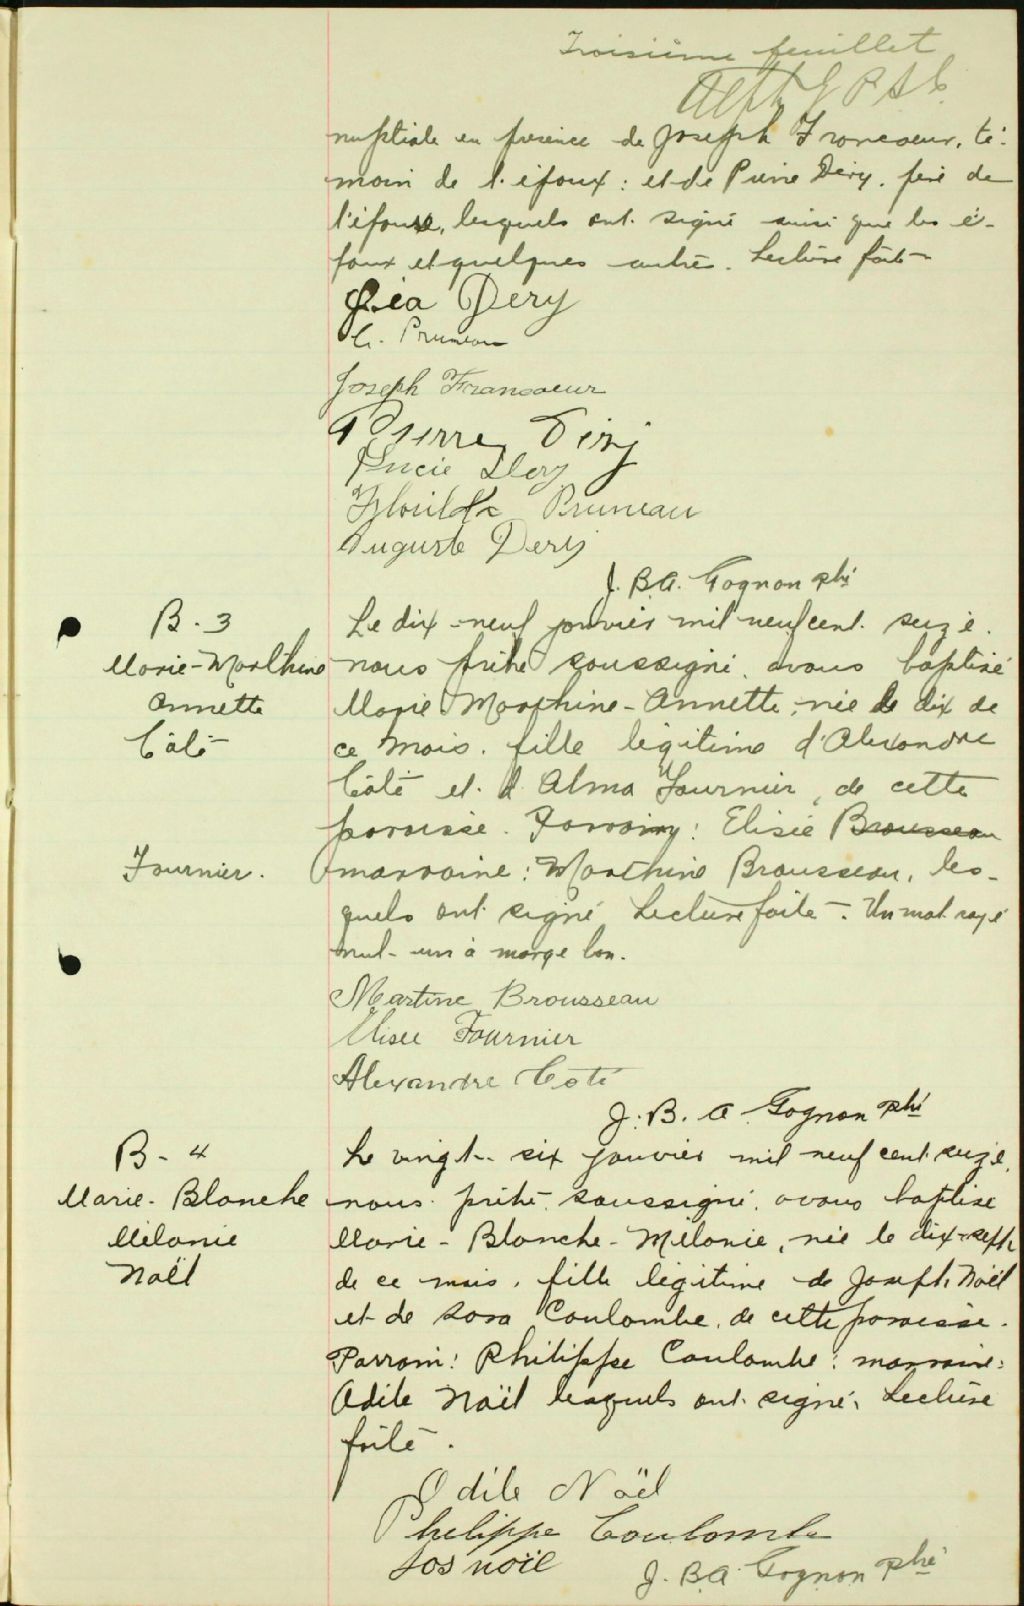 Troisième feuillet
nuptiale en présence de Joseph Francoeur, té-
moin de l'époux: et de Pierre Déry, père de
l'épouse, lesquels ont signé ainsi que les é-
poux et quelques autres. Lecture faite
Léa Dery
Pruneau
Joseph Francoeur
Pierre Déry
Lucie Dery
Auguste Dery
Pruneau
J. B. A. Gagnon ptre
B. 3
Marie-Marthine
Annette
Côté
Fournier.
Le dix-neuf janvier mil neuf cent seize,
nous prêtre soussigné, avons baptisé
Marie Marthine-Annette, née le dix de
ce mois, fille légitime d'Alexandre
Côté et d'Alma Fournier, de cette
paroisse. Parrain: Elisée Brousseau
marraine: Marthine Brousseau, les-
quels ont signé. Lecture faite. Un mot rayé
nul. un à marge bon.
Martine Brousseau
Elisee Fournier
Alexandre Coté
J. B. A Gagnon ptre
B. 4
Marie-Blanche
Mélanie
Noël
Le vingt-six janvier mil neuf cent seize,
nous prêtre soussigné, avons baptisé
Marie-Blanche-Mélanie, née le dix-sept
de ce mois, fille légitime de Joseph Noël
et de Rosa Coulombe, de cette paroisse.
Parrain: Philippe Coulombe: marraine:
Odile Noël lesquels ont signé. Lecture
faite.
Odile Noël
Philippe Coulombe
Jos noël
J. B. A. Gagnon ptre